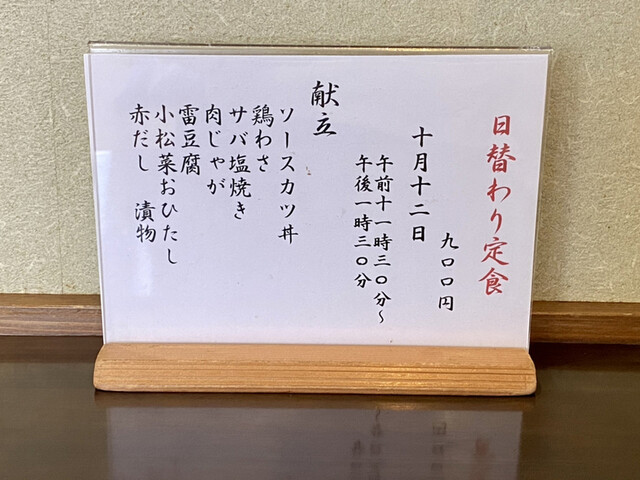 日替わり定食
九〇〇円
十月十二日
午前十一時三〇分～
午後一時三〇分
献立
ソースカツ丼
鶏わさ
サバ塩焼き
肉じゃが
雷豆腐
小松菜おひたし
赤だし　漬物